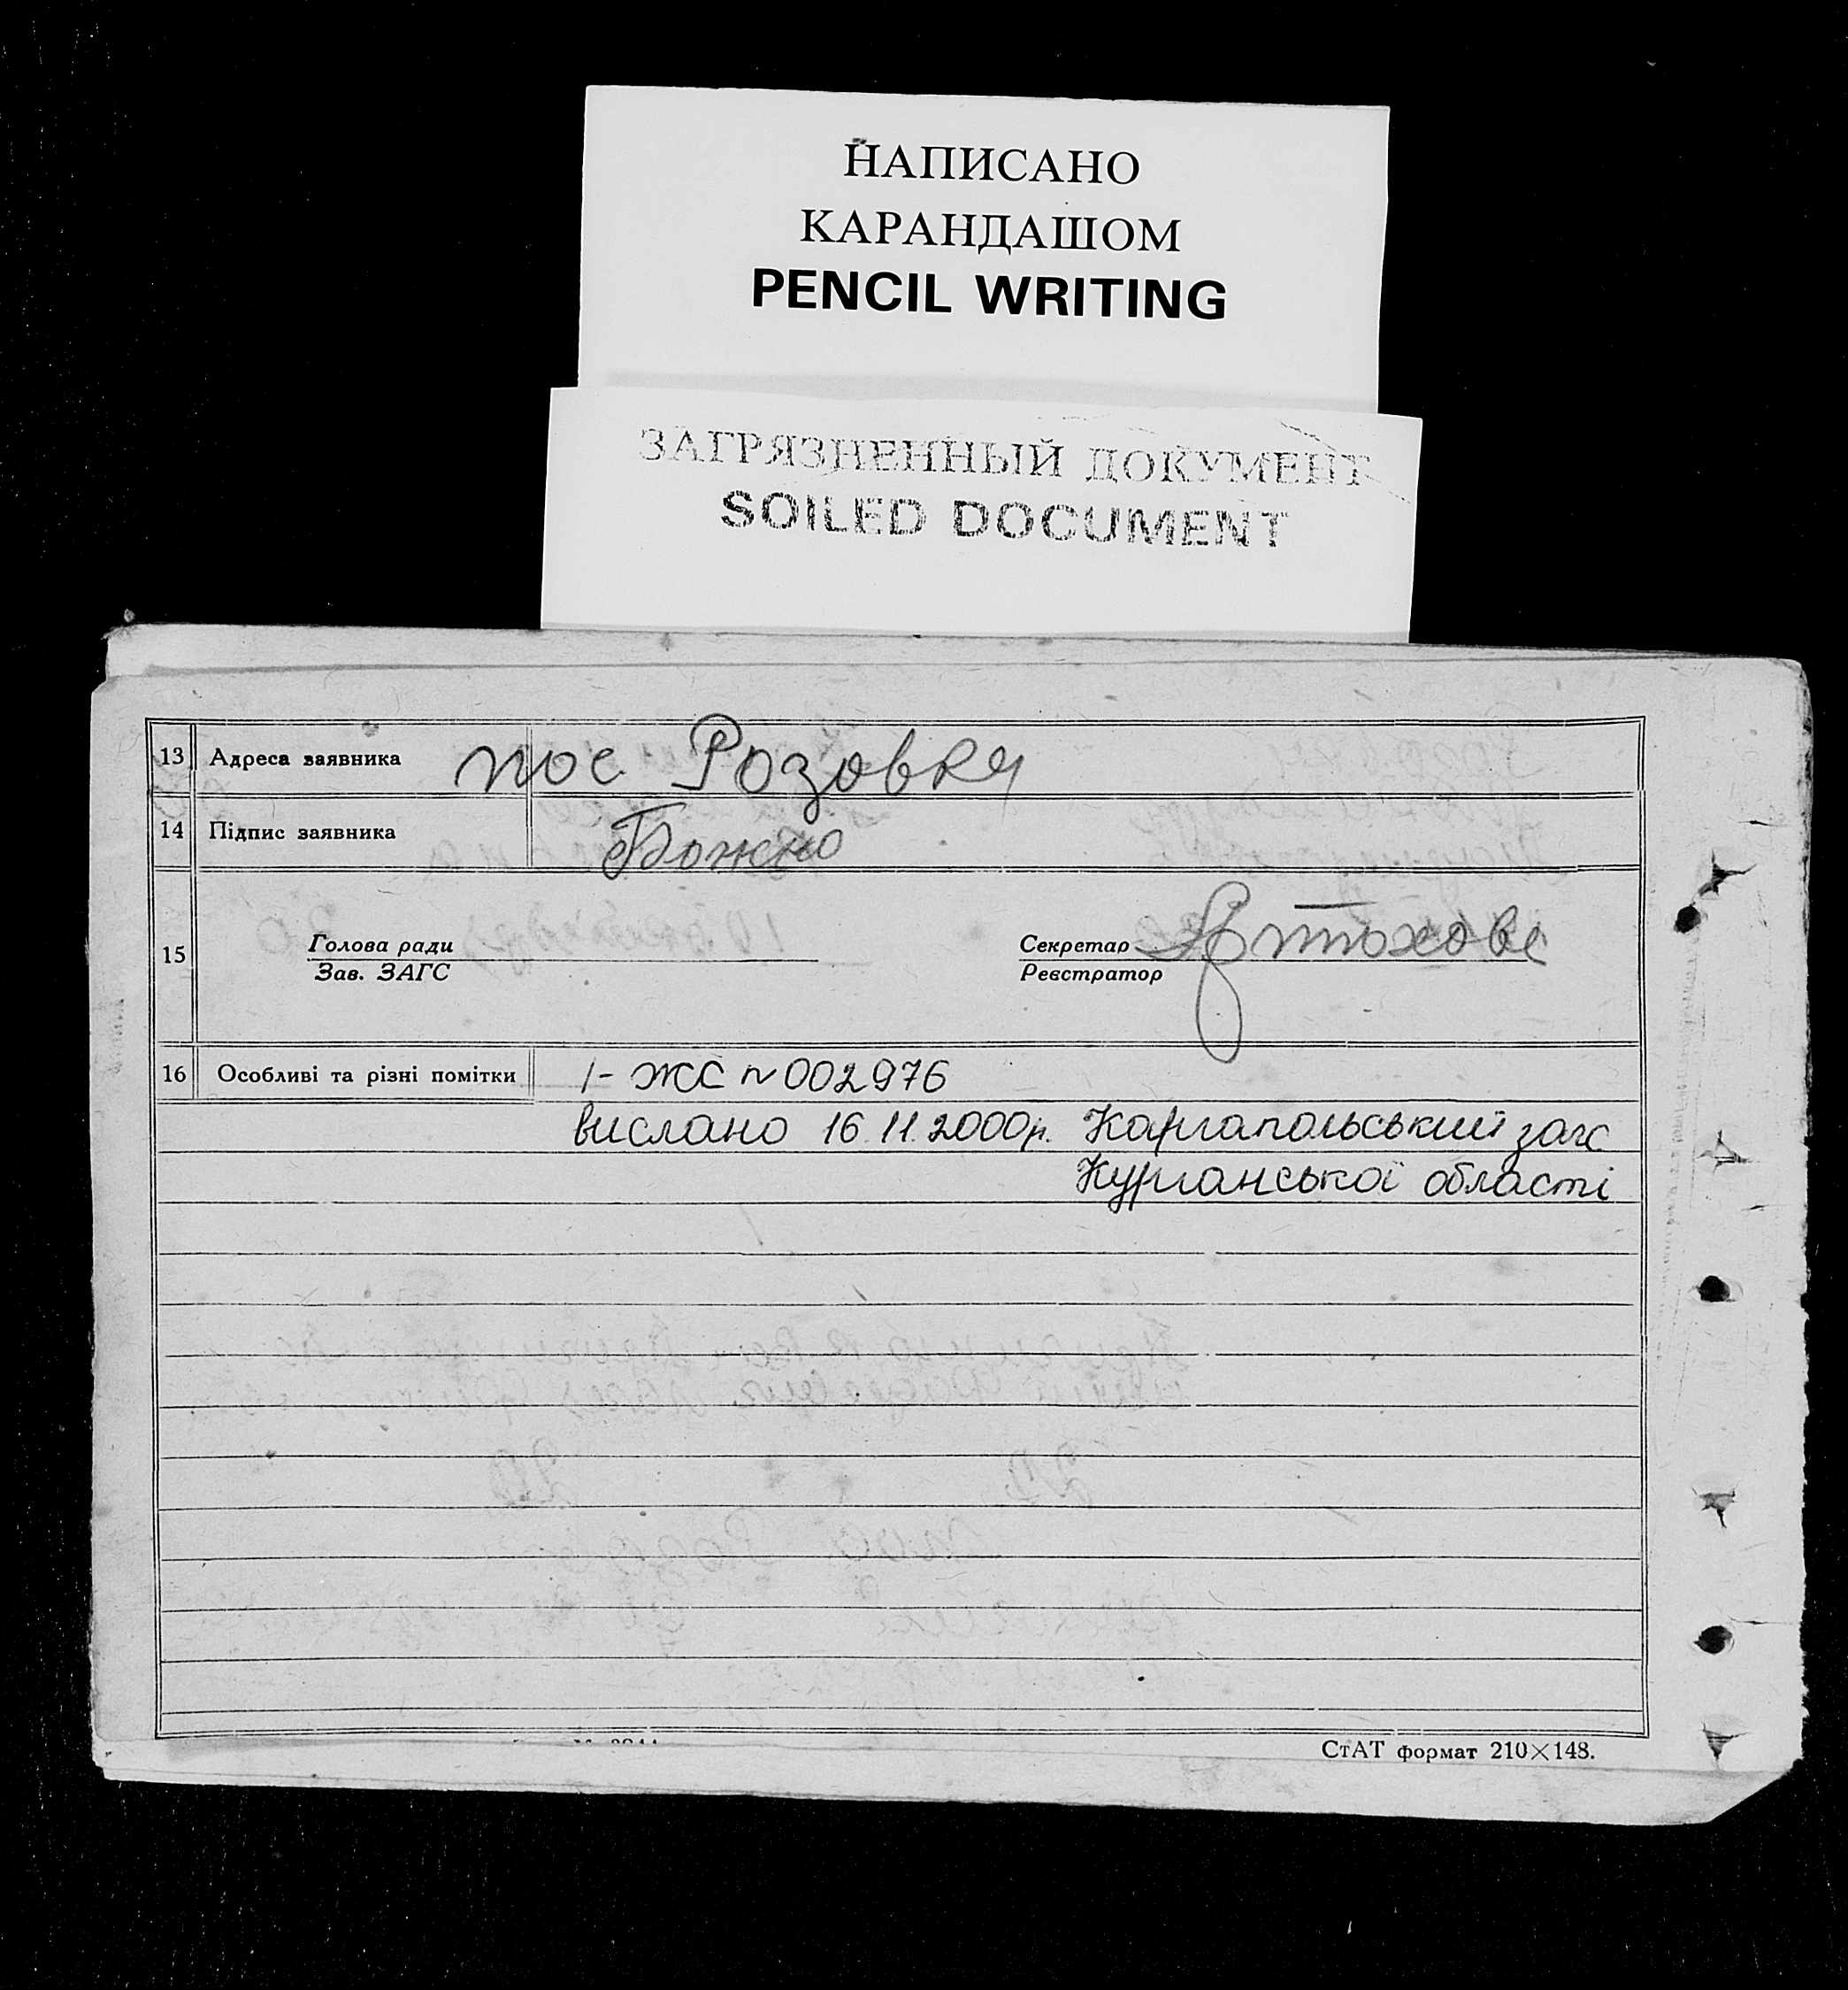 НАПИСАНО
КАРАНДАШОМ
PENCIL WRITING
ЗАГРЯЗНЕННЫЙ ДОКУМЕНТ
SOILED DOCUMENT
13 Адреса заявника пос. Розовка
14 Підпис заявника Божко
15 Голова ради Секретар
Зав. ЗАГС Реєстратор
16 Особливі та різні помітки I-ЖС № 002976
вислано 16.11.2000р. Каргапольський загс
Курганської області
СтАТ формат 210×148.